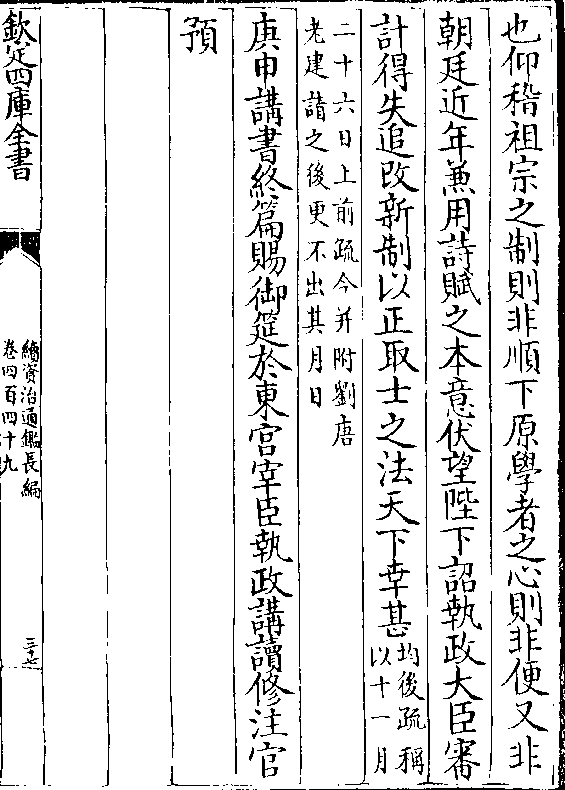 也仰稽祖宗之制則非順下原學者之心則非便又非
朝廷近年兼用詩賦之本意伏望陛下詔執政大臣審
計得失追改新制以正取士之法天下幸甚均後疏稱
以十一月
二十六日上前疏今并附劉唐
老建請之後更不出其月日
庚申講書終篇賜御筵於東宫宰臣執政講讀修注官
預
欽定四庫全書
續資治通鑑長編
卷四百四十九
三十七